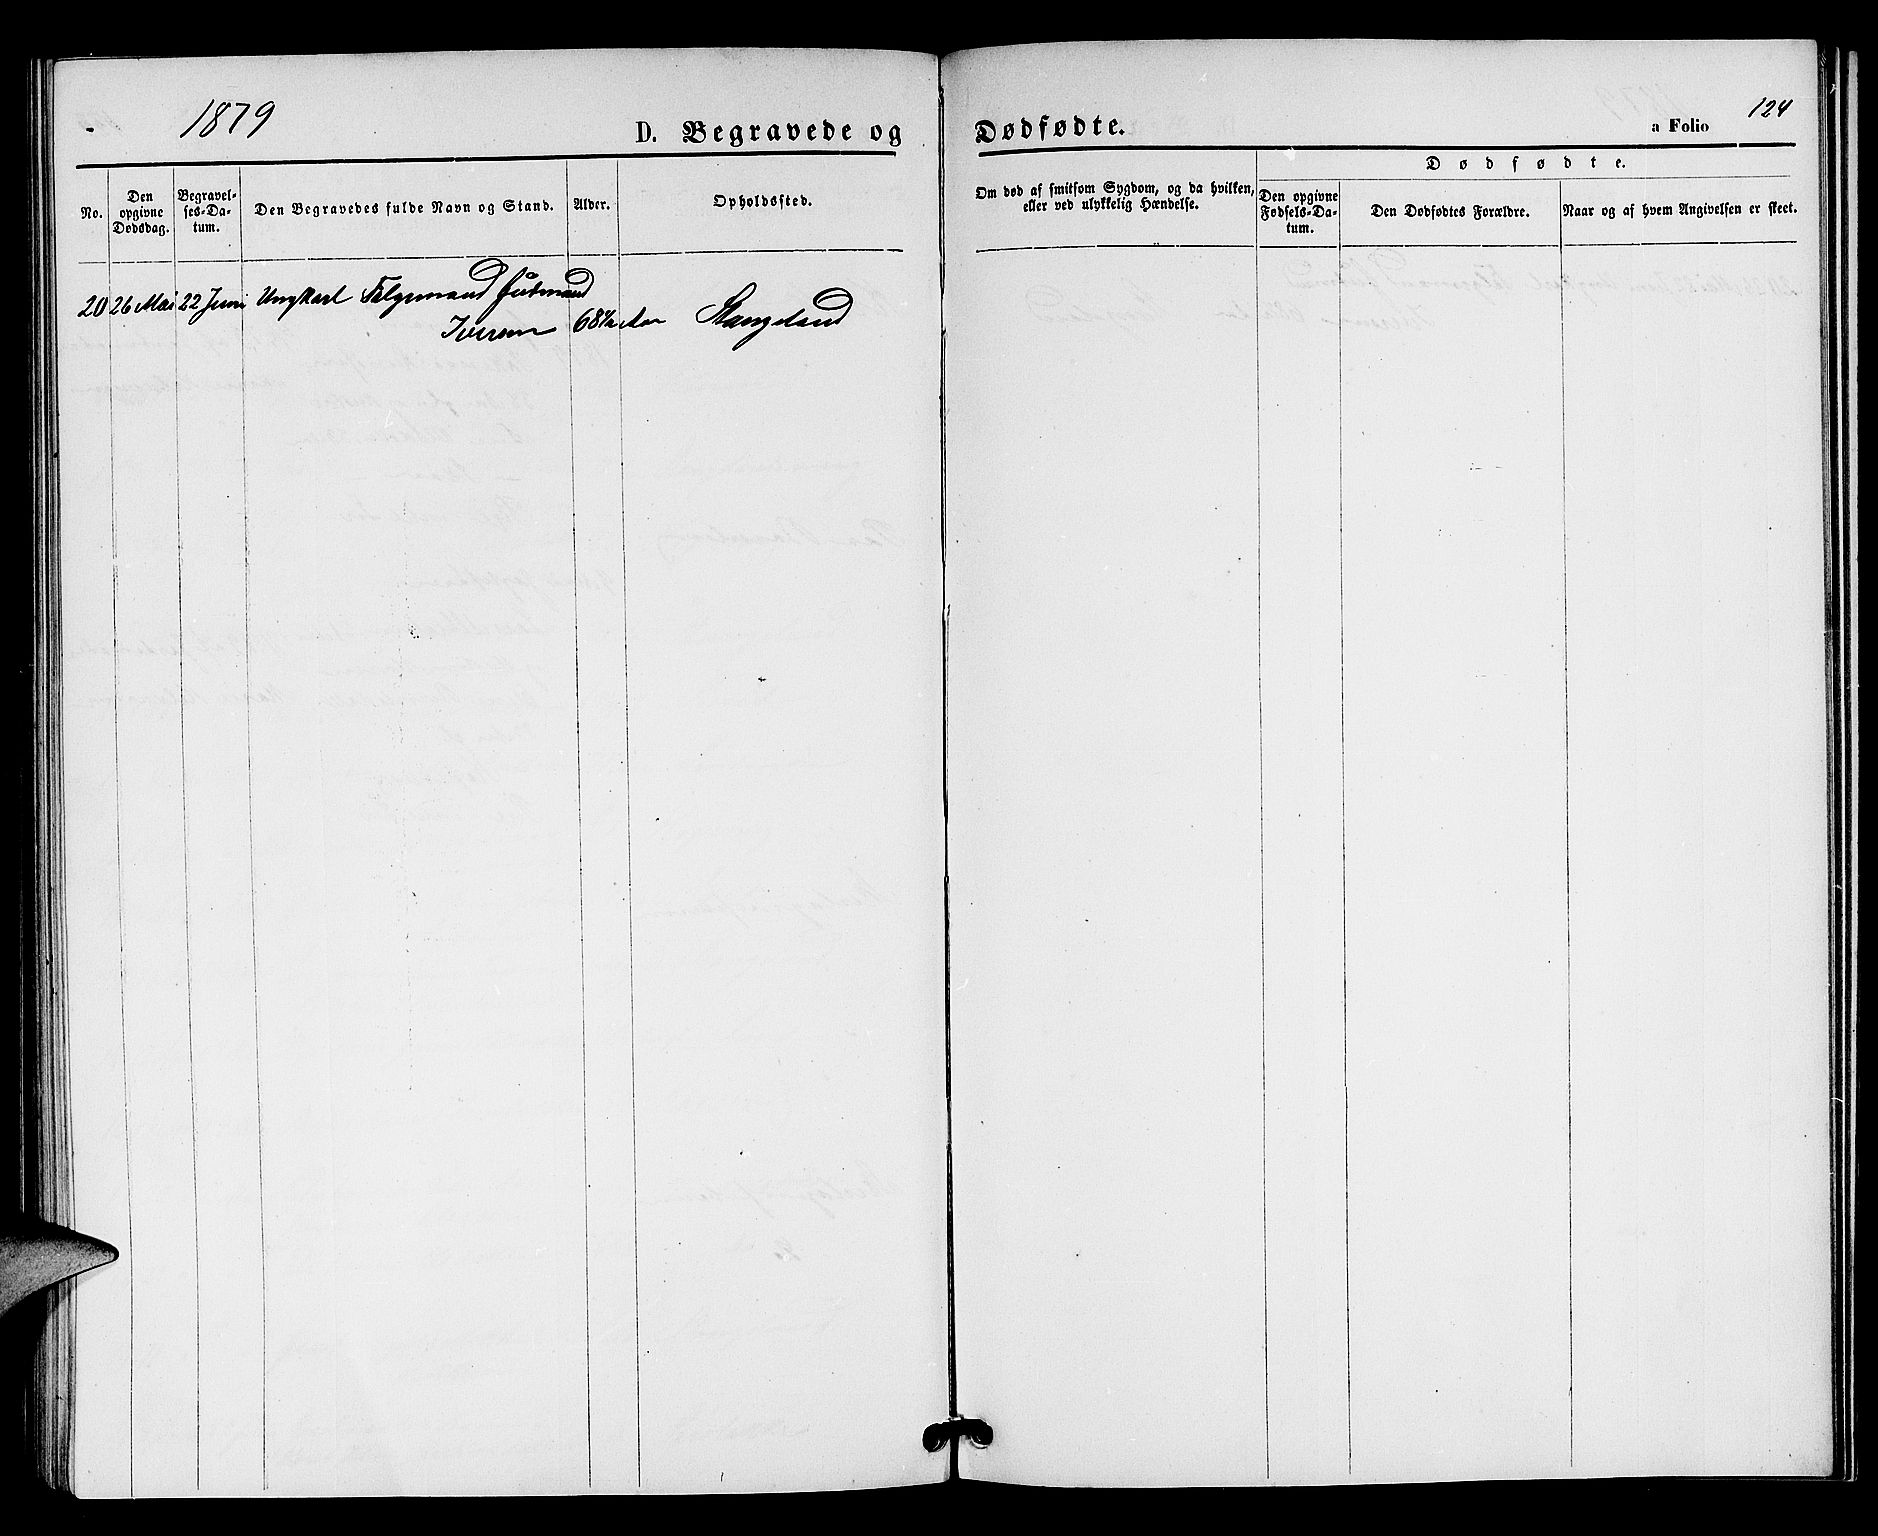 1879
D. Begravede og Dødfødte.
a Folio 124
No.
Den opgivne Dødsdag.
Begravelses-Datum.
Den Begravedes fulde Navn og Stand.
Alder.
Opholdssted.
Om død af smitsom Sygdom, og da hvilken, eller ved ulykkelig Hændelse.
Dødfødte.
Den opgivne Fødsels-Datum.
Den Dødfødtes Forældre.
Naar og af hvem Angivelsen er skeet.
20 26 Mai 22 Juni Ungkarl Gudmund
Iversen 68½ Aar Stangeland